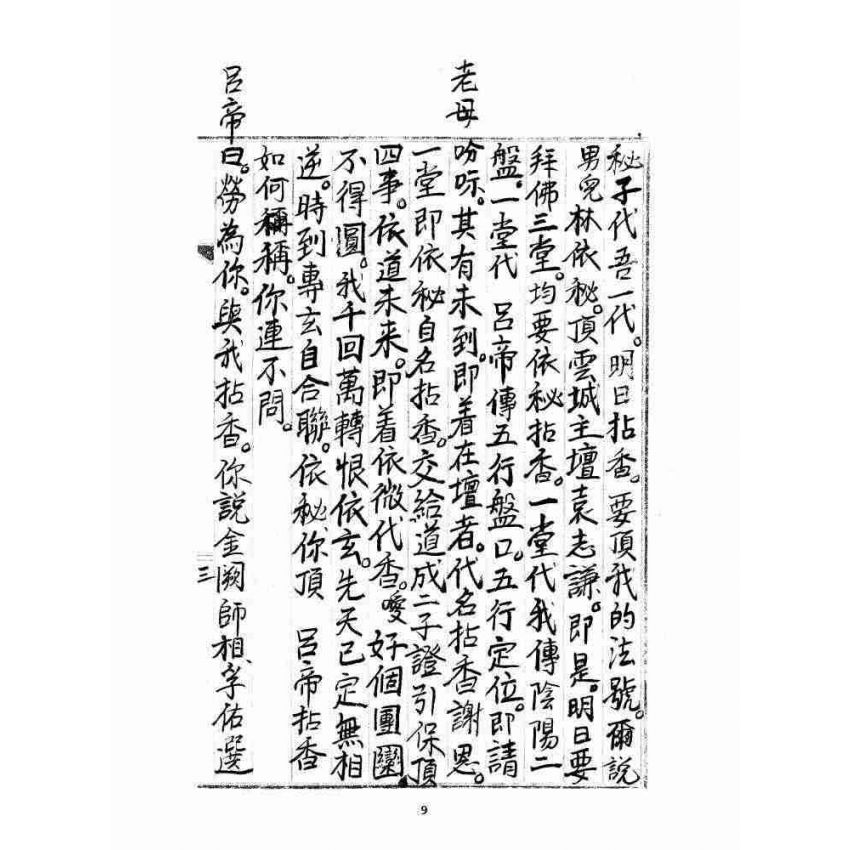 秘子代吾一代。明日拈香。要頂我的法號。爾說
男兒林依秘。頂雲城主壇袁志謙。即是。明日要
拜佛三堂。均要依秘拈香。一堂代我傳陰陽二
盤。一堂代 呂帝傳五行盤口。五行定位。即請
老母吩咐。其有未到。即着在壇者。代名拈香謝恩。
一堂即依秘自名拈香。交給道成二子證引保頂
四事。依道未来。即着依微代香。噯 好個團圞
不得圓。我千回萬轉恨依玄。先天已定無相
逆。時到專玄自合聯。依秘你頂 呂帝拈香
如何稱稱。你連不問。
呂帝曰。勞為你。與我拈香。你說金闕師相孚佑選
三
9